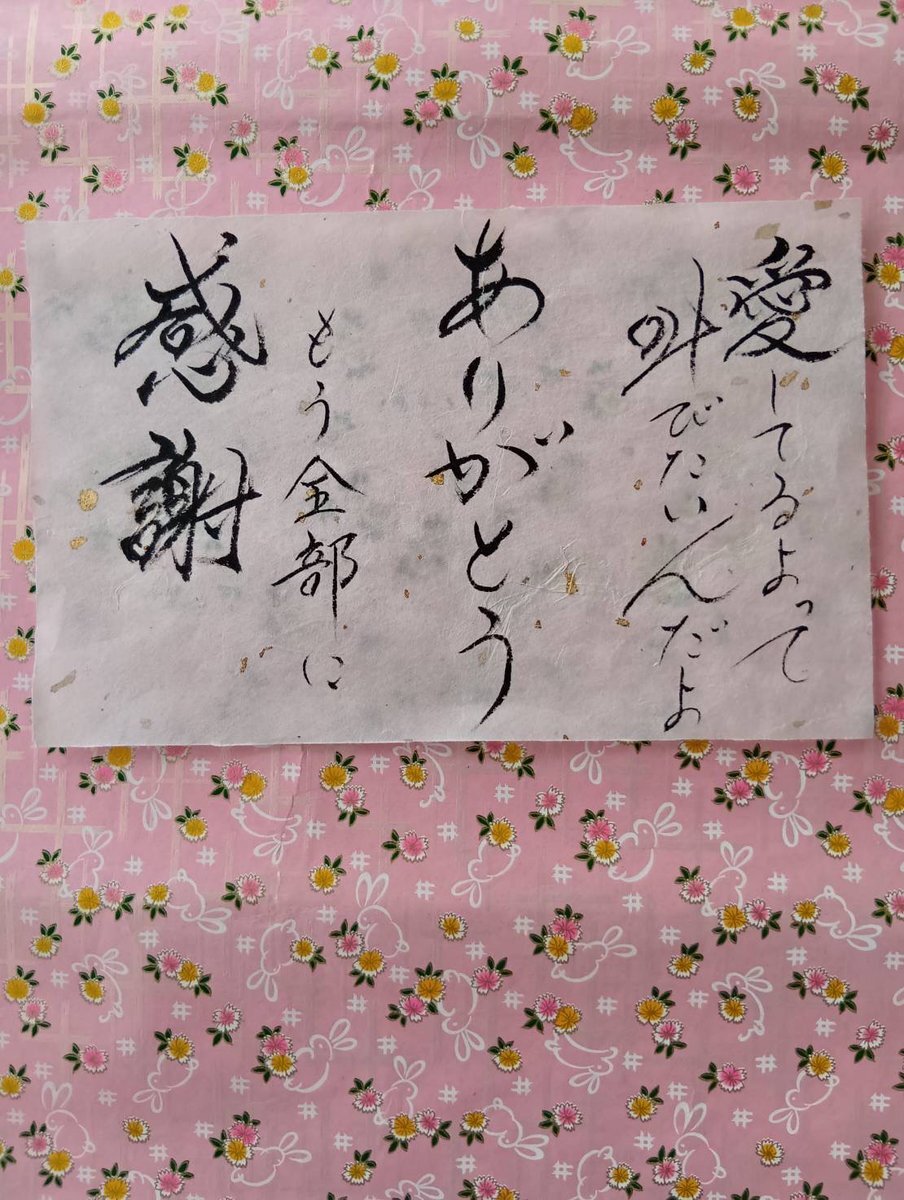 愛してるよって
叫びたいんだよ
ありがとう
もう全部に
感謝